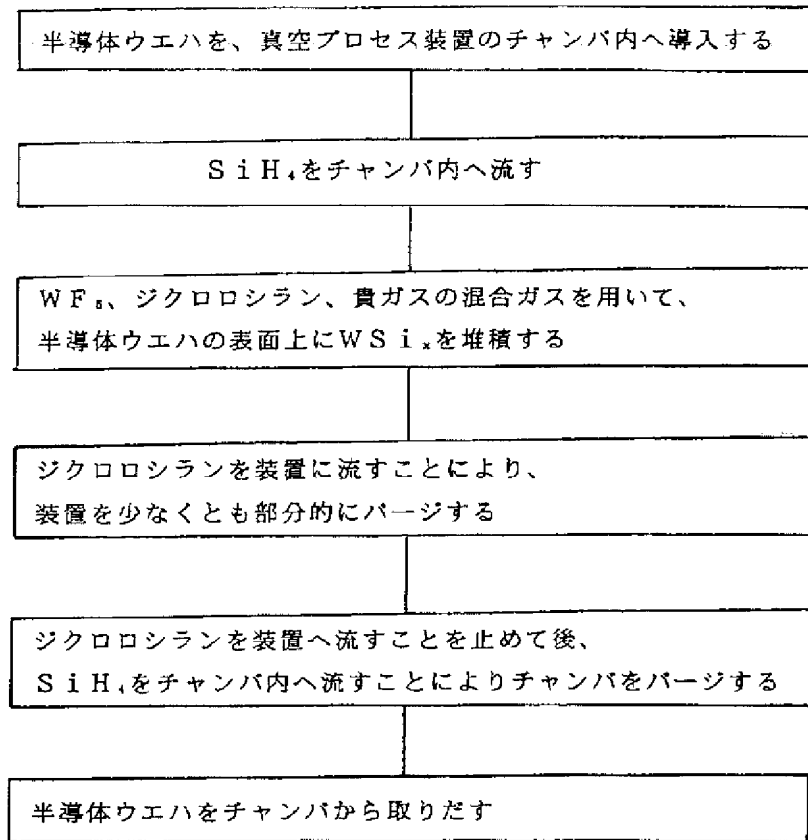 半導体ウエハを、真空プロセス装置のチャンバ内へ導入する
SiH₄をチャンバ内へ流す
WF₆、ジクロロシラン、貴ガスの混合ガスを用いて、
半導体ウエハの表面上にWSiₓを堆積する
ジクロロシランを装置に流すことにより、
装置を少なくとも部分的にパージする
ジクロロシランを装置へ流すことを止めて後、
SiH₄をチャンバ内へ流すことによりチャンバをパージする
半導体ウエハをチャンバから取りだす